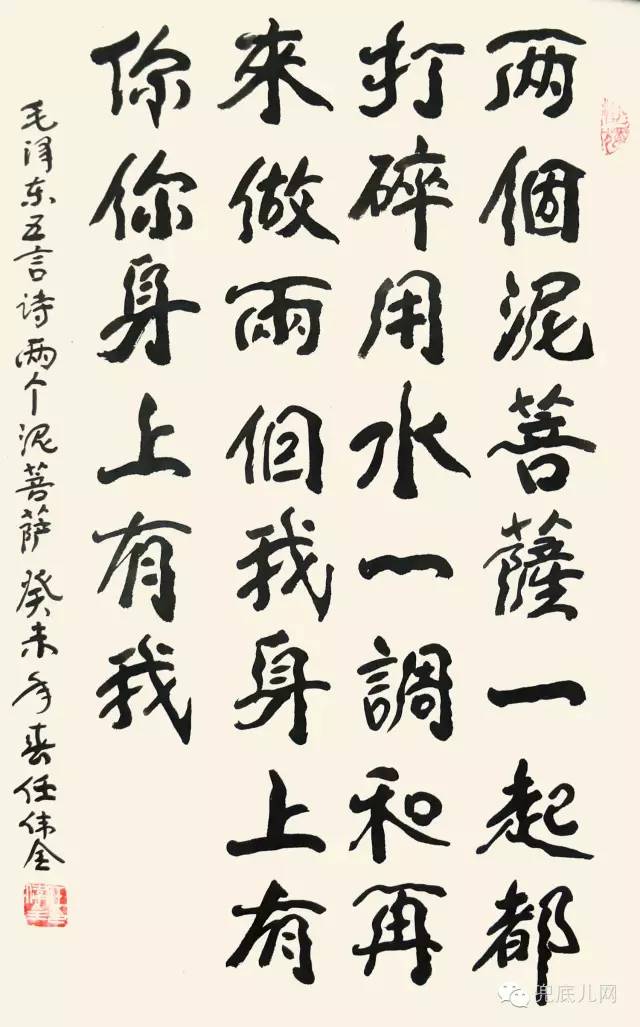 两個泥菩薩一起都
打碎用水一調和再
來做兩個我身上有
你你身上有我
毛泽东五言诗两个泥菩萨癸未年春任伟金
兜底儿网